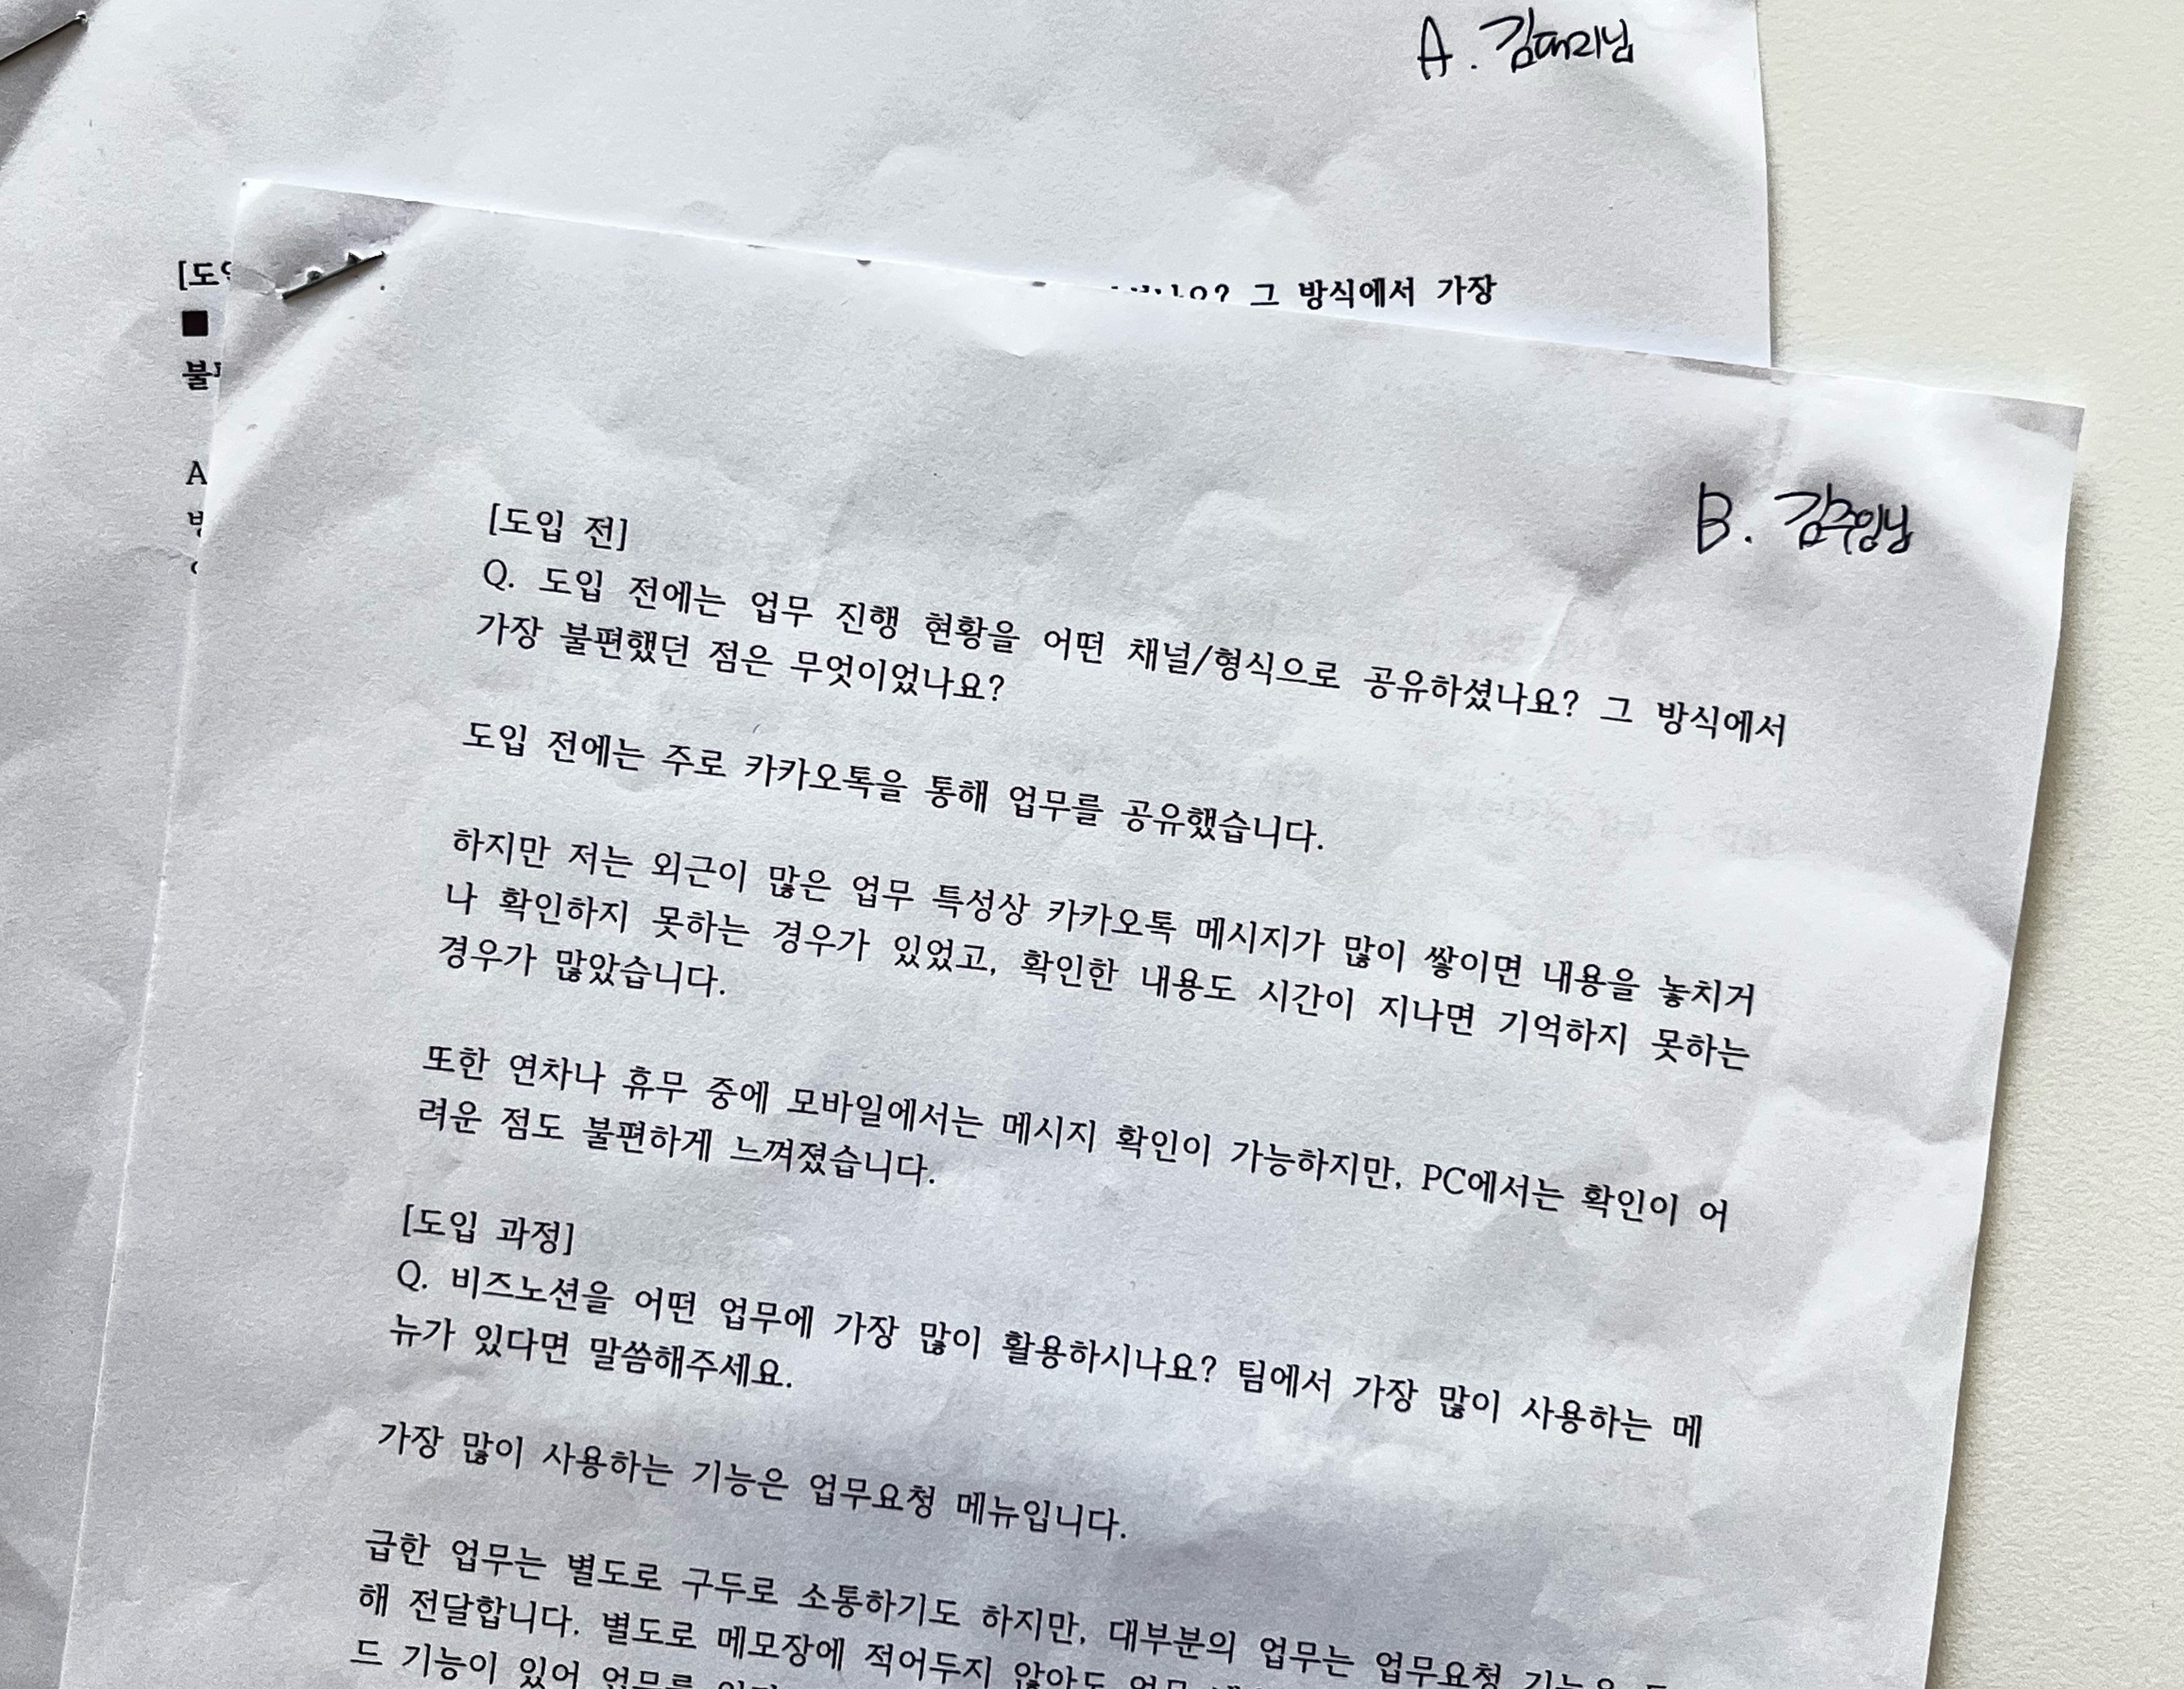 A. 김대리님
[도입
그 방식에서 가장
■
A
B. 김주임님
[도입 전]
Q. 도입 전에는 업무 진행 현황을 어떤 채널/형식으로 공유하셨나요? 그 방식에서
가장 불편했던 점은 무엇이었나요?
도입 전에는 주로 카카오톡을 통해 업무를 공유했습니다.
하지만 저는 외근이 많은 업무 특성상 카카오톡 메시지가 많이 쌓이면 내용을 놓치거
나 확인하지 못하는 경우가 있었고, 확인한 내용도 시간이 지나면 기억하지 못하는
경우가 많았습니다.
또한 연차나 휴무 중에 모바일에서는 메시지 확인이 가능하지만, PC에서는 확인이 어
려운 점도 불편하게 느껴졌습니다.
[도입 과정]
Q. 비즈노션을 어떤 업무에 가장 많이 활용하시나요? 팀에서 가장 많이 사용하는 메
뉴가 있다면 말씀해주세요.
가장 많이 사용하는 기능은 업무요청 메뉴입니다.
급한 업무는 별도로 구두로 소통하기도 하지만, 대부분의 업무는 업무요청 기능을
해 전달합니다. 별도로 메모장에 적어두지 않아도 업무
드 기능이 있어 업무를